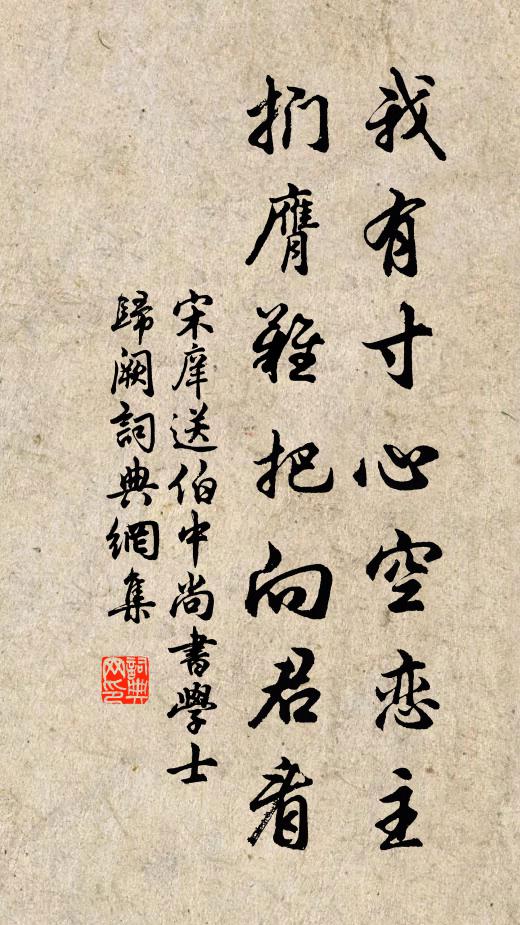 我有寸心空恋主
捫膺難把向君看
宋庠送伯中尚書學士
歸闕詞典網集
詞典
网印